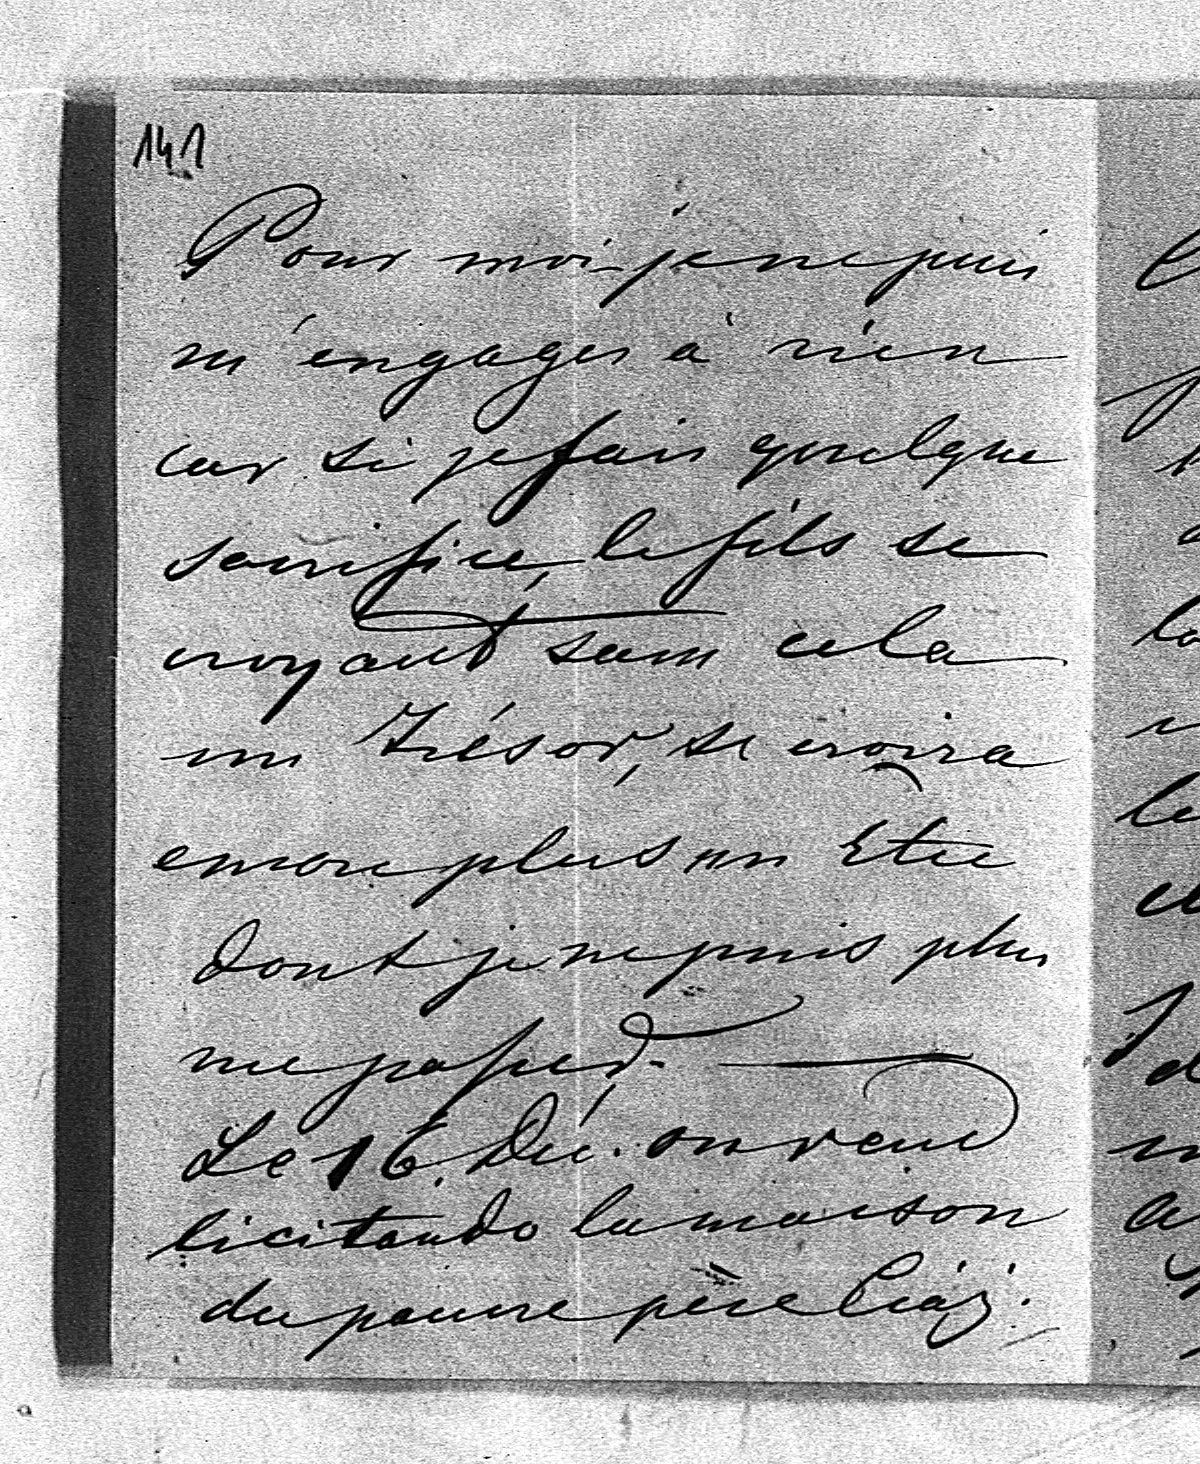 141
Pour moi je ne puis
m'engager à rien
car si je fais quelque
sacrifice, le fils se
croyant sans cela
un trésor, se croira
encore plus un Etre
dont je ne puis plus
me passer. —
Le 16. Déc. on vend
licitando la maison
du pauvre père